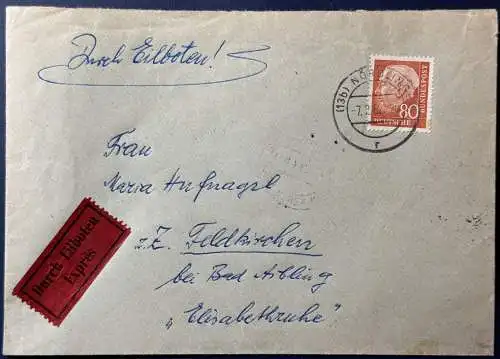 Durch Eilboten!
(13b) NÖRDLINGEN
-7.
r
80
DEUTSCHE
BUNDESPOST
Frau
Maria Hufnagel
z.Z. Feldkirchen
bei Bad Aibling
"Elisabethruhe"
Durch Eilboten
Exprès